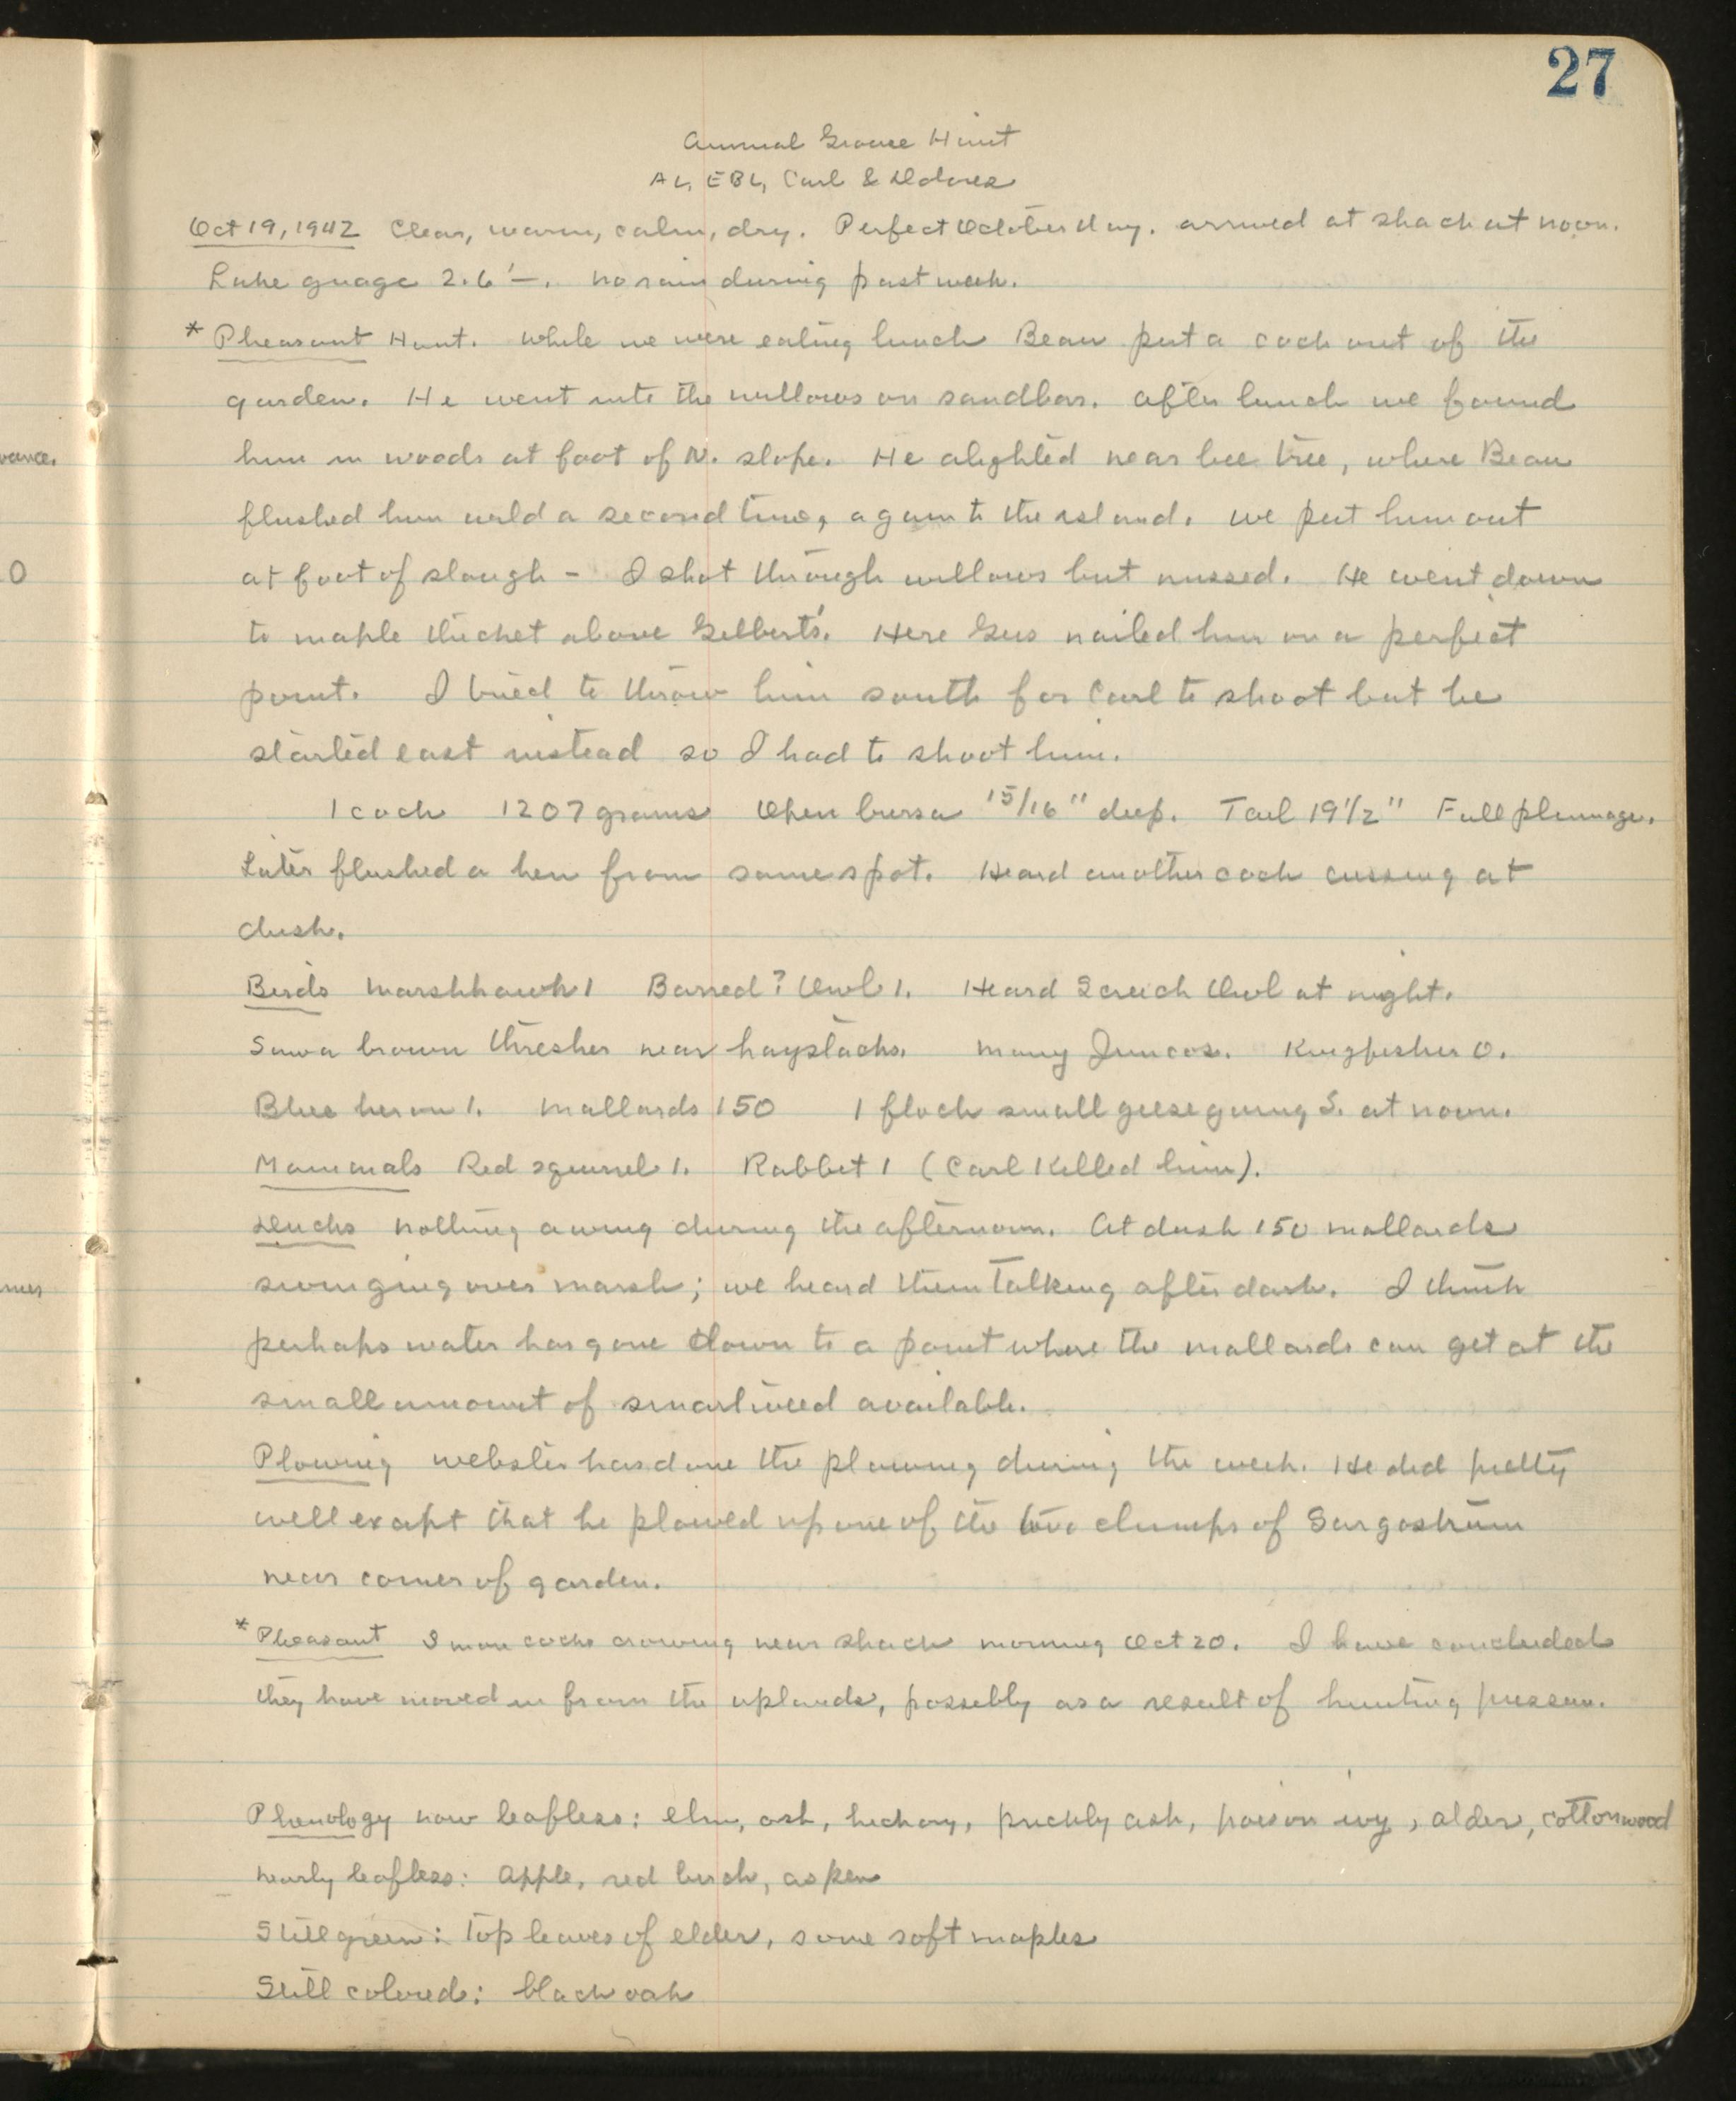 27
Annual Grouse Hunt
AL, EBL, Carl & Dolores
Oct 19, 1942 Clear, warm, calm, dry. Perfect October day. arrived at shack at noon.
Lake guage 2.6'–. no rain during past week.
* Pheasant Hunt. While we were eating lunch Beau put a cock out of the
garden. He went into the willows on sandbar. After lunch we found
vance.
him in woods at foot of N. slope. He alighted near bee tree, where Beau
flushed him wild a second time, again to the island. We put him out
0
at foot of slough – I shot through willows but missed. He went down
to maple thicket above Gilbert's. Here Gus nailed him on a perfect
point. I tried to throw him south for Carl to shoot but he
started east instead so I had to shoot him.
1 cock 1207 grams Open bursa 15/16" deep. Tail 19 1/2" Full plumage.
Later flushed a hen from same spot. Heard another cock cussing at
dusk.
Birds Marshhawk 1 Barred? Owl 1. Heard Screech Owl at night.
Saw a brown thresher near haystacks. Many Juncos. Kingfisher 0.
Blue heron 1. Mallards 150 1 flock small geese going S. at noon.
Mammals Red squirrel 1. Rabbit 1 (Carl killed him).
Ducks nothing awing during the afternoon. At dusk 150 mallards
swinging over marsh; we heard them talking after dark. I think
perhaps water has gone down to a point where the mallards can get at the
small amount of smartweed available.
Plowing Webster has done the plowing during the week. He did pretty
well except that he plowed up one of the two clumps of Sorgastrum
near corner of garden.
* Pheasant 2 more cocks crowing near shack morning Oct 20. I have concluded
they have moved in from the uplands, possibly as a result of hunting pressure.
Phenology now leafless: elm, ash, hickory, prickly ash, poison ivy, alder, cottonwood
nearly leafless: Apple, red birch, aspen
Still green: top leaves of elder, some soft maples
Still colored: black oak